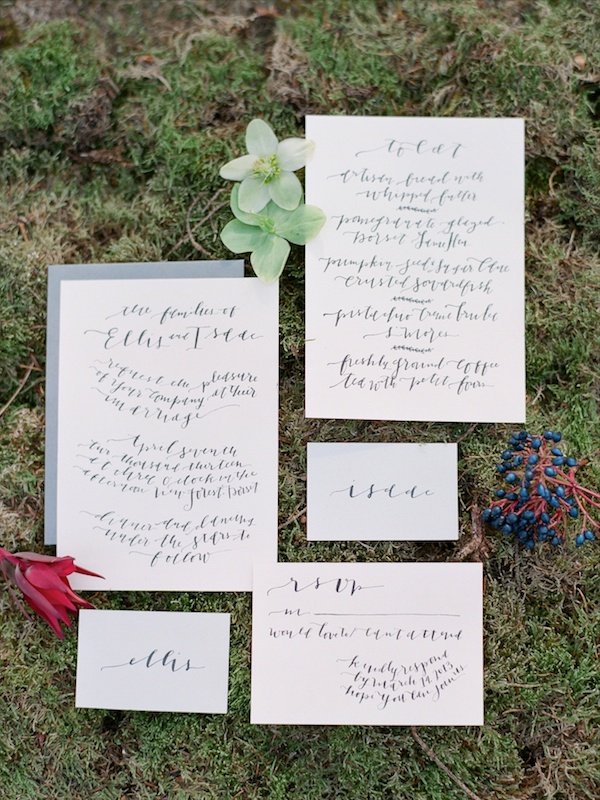 the families of
Ellis and Isaac
request the pleasure
of your company at their
marriage
April seventh
two thousand thirteen
at three o'clock in the
afternoon New Forest Dorset
dinner and dancing
under the stars to
follow
to eat
artisan bread with
whipped butter
pomegranate glazed
Dorset
pumpkin seed & sugar cane
crusted swordfish
pistachio creme brulee
s'mores
freshly ground coffee
tea with petit fours
isaac
ellis
rsvp
m
would love to / can't attend
kindly respond
by march 14, 2013
hope you can join us